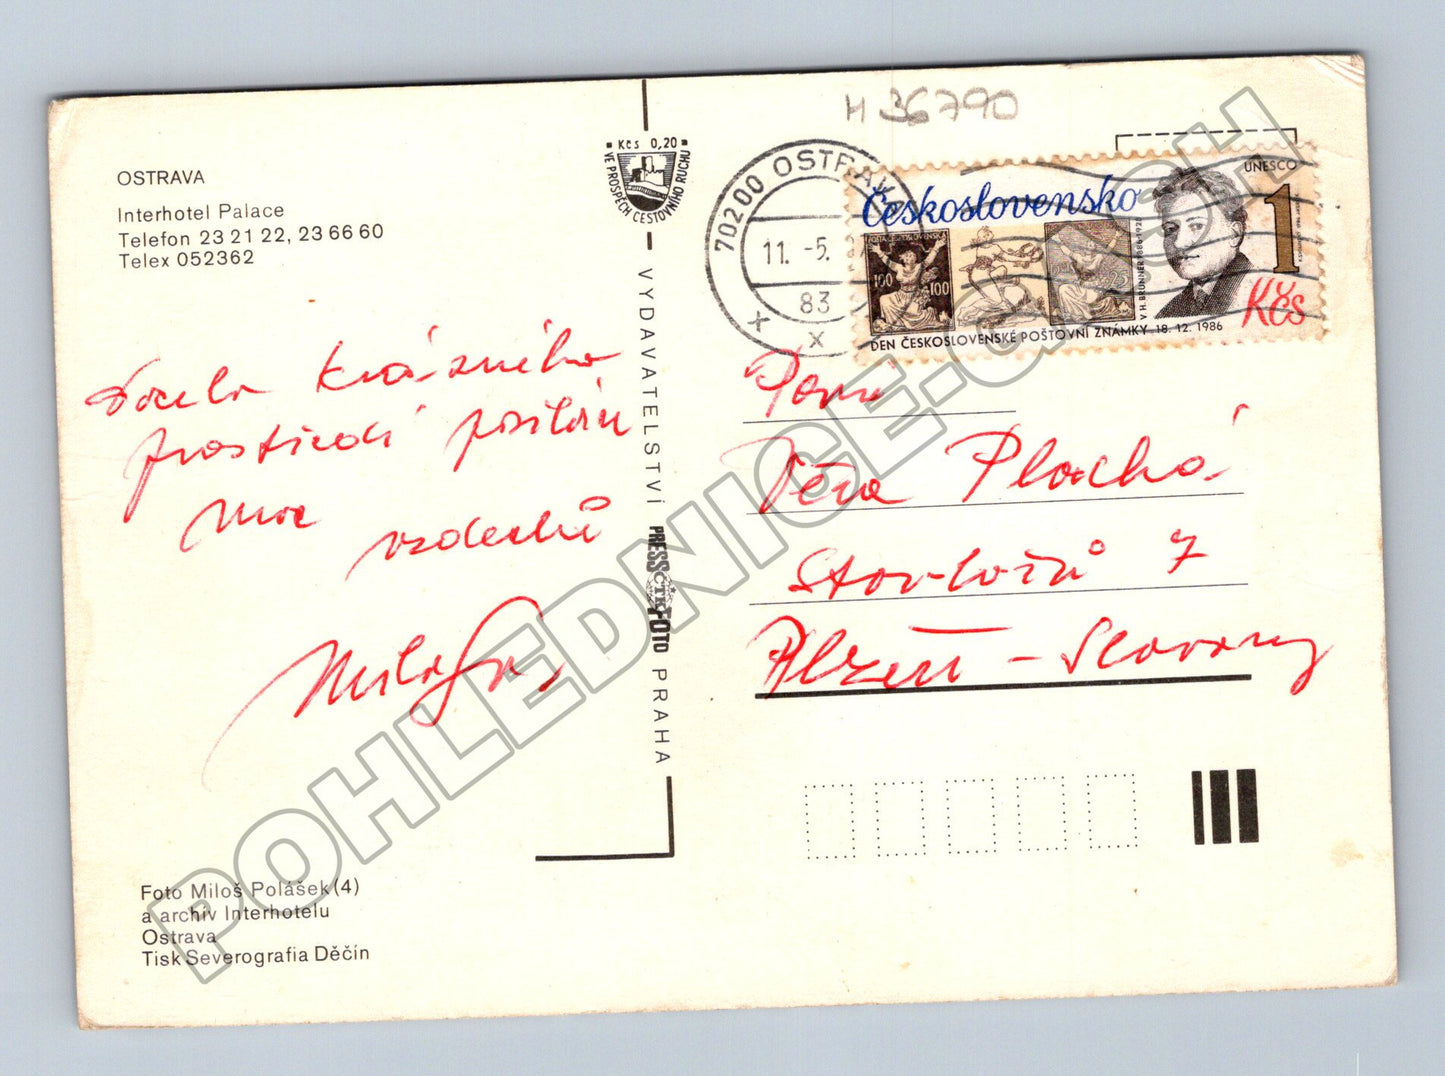 H 36790
OSTRAVA
Interhotel Palace
Telefon 23 21 22, 23 66 60
Telex 052362
Kčs 0,20
VE PROSPĚCH CESTOVNÍHO RUCHU
VYDAVATELSTVÍ PRESSFOTO PRAHA
ČTK
70200 OSTRAVA
11. -5.
83
x
Československo
UNESCO
1
Kčs
100 100
25
V.H. BRUNNER 1886-1928
DEN ČESKOSLOVENSKÉ POŠTOVNÍ ZNÁMKY 18. 12. 1986
krásného
prostředí posílám
moc vzdechů
Paní
Věra Plachá
7
Plzeň - Slovany
Foto Miloš Polášek (4)
a archiv Interhotelu
Ostrava
Tisk Severografia Děčín
POHLEDNICE-CASH